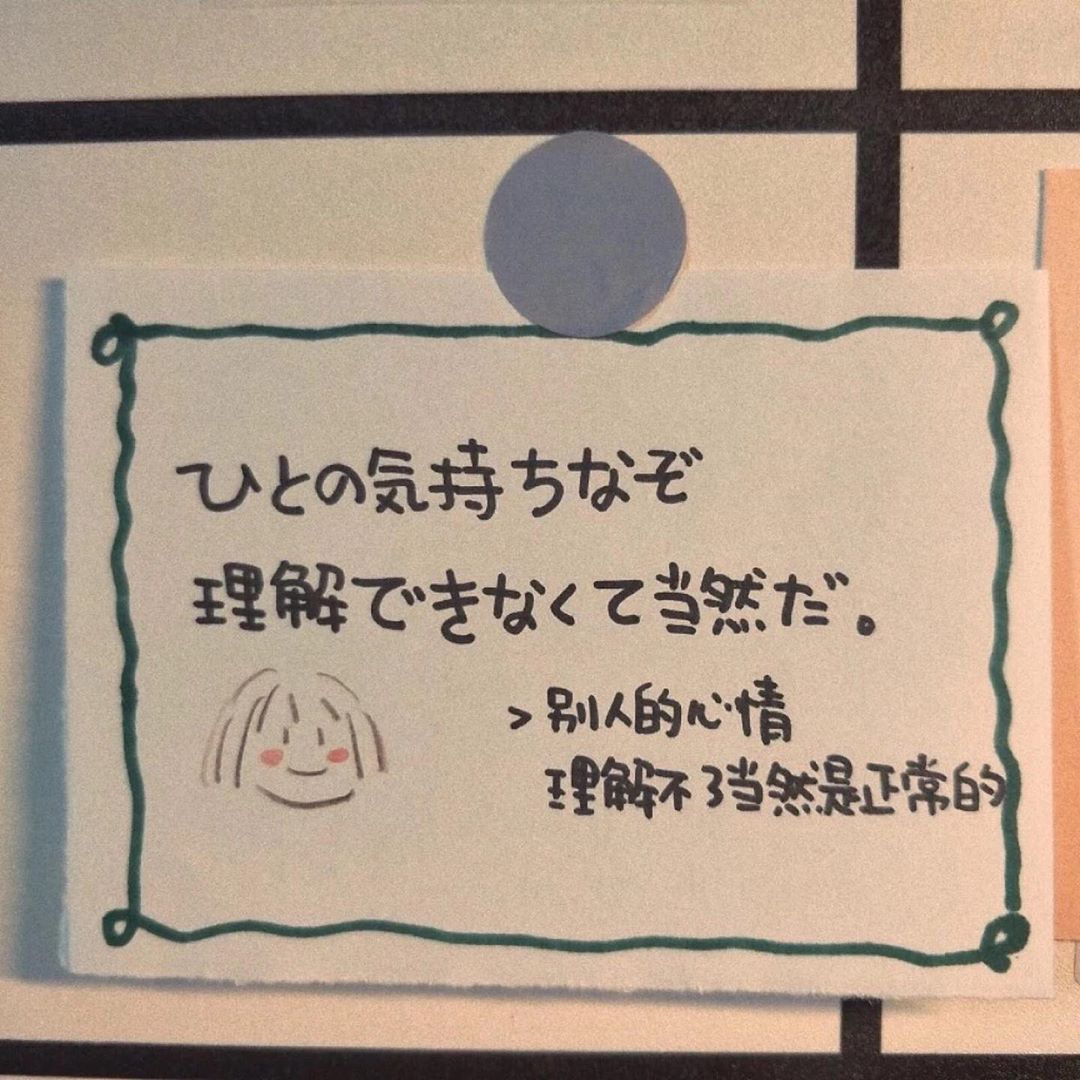 ひとの気持ちなぞ
理解できなくて当然だ。
>别人的心情
理解不了当然是正常的